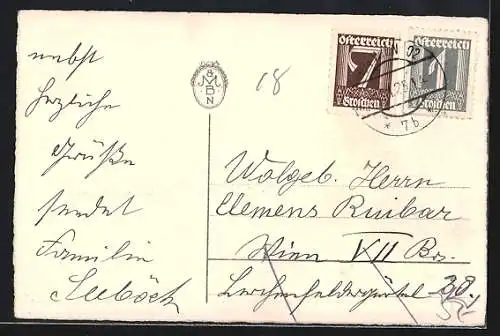 nebst
herzliche
Grüße
sendet
Familie
Seeböck
& M B N
18
Österreich
7
Groschen
Österreich
1
Groschen
* 7b *
Wolgeb. Herrn
Clemens Ruibar
Wien VII Bez.
Lerchenfeldergürtel